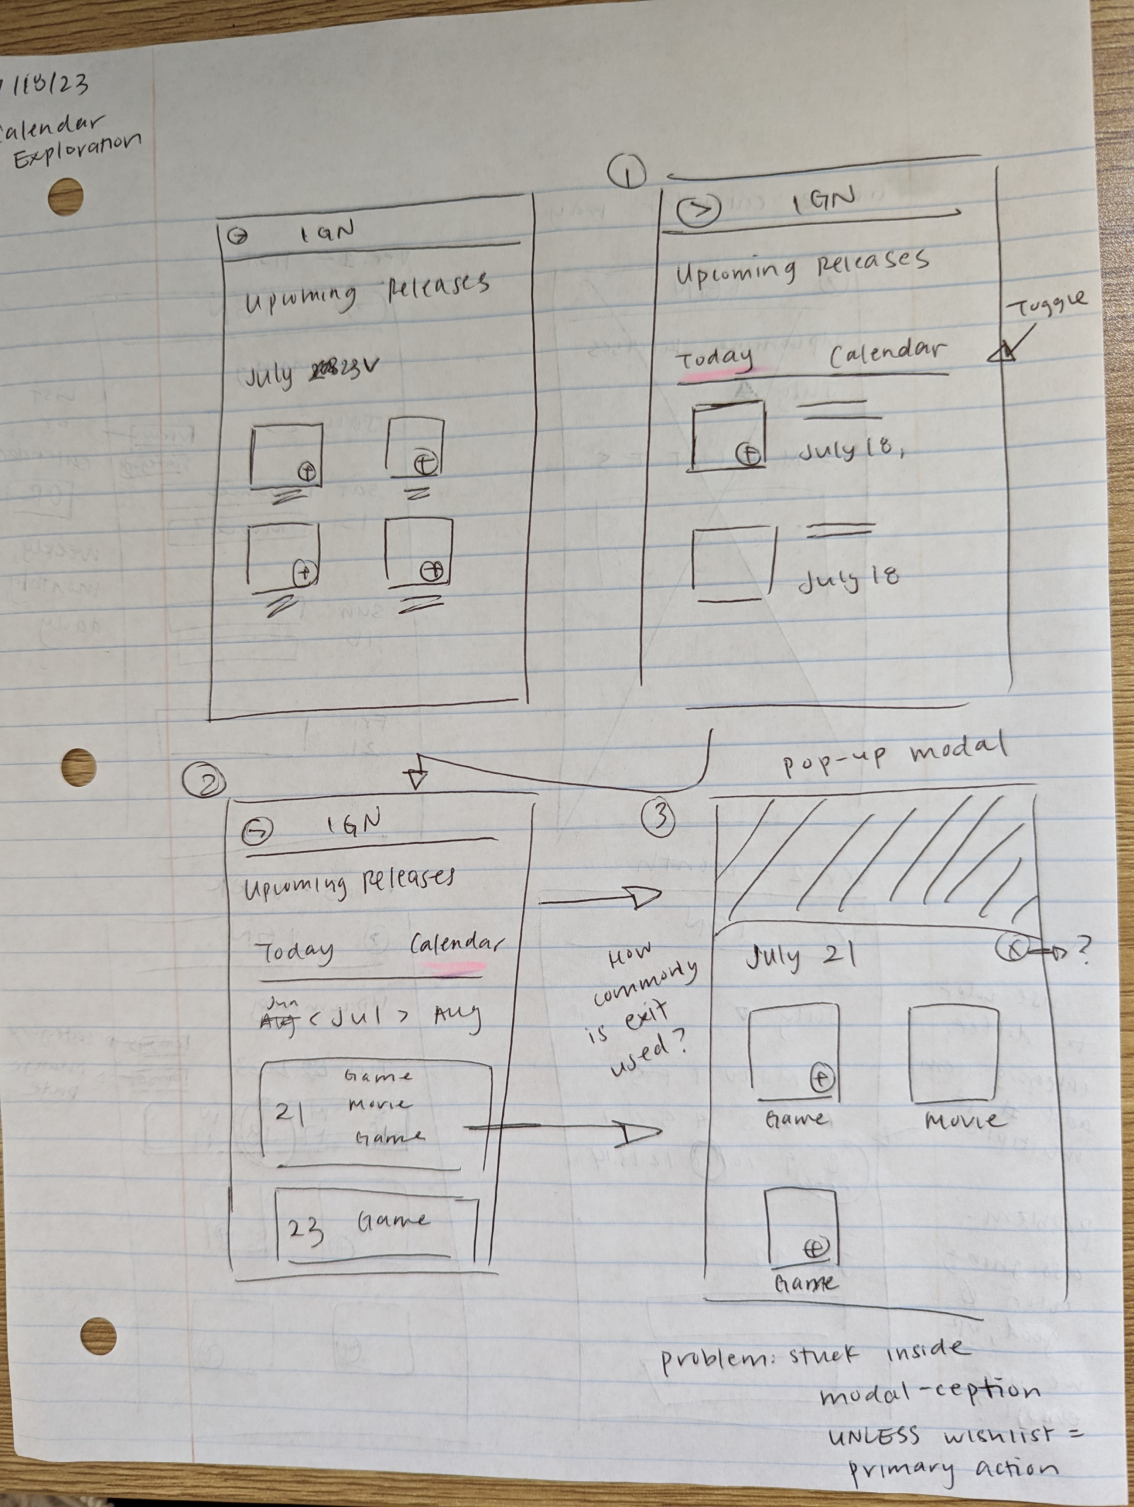 /18/23
Calendar
Exploration
IGN
Upcoming Releases
July 23 V
1
IGN
Upcoming Releases
Toggle
Today Calendar
July 18,
July 18
2
IGN
Upcoming Releases
Today Calendar
Jun
Aug < Jul > Aug
21
Game
Movie
Game
23 Game
How
commonly
is exit
used?
pop-up modal
3
July 21
x
?
Game Movie
Game
problem: stuck inside
modal-ception
UNLESS wishlist =
primary action